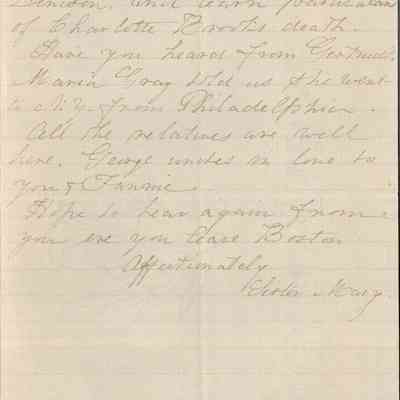 Denison, and learn particulars
of Charlotte Brooks death.
Have you heard from Gertrude,
Maria Gray told us she went
to N.Y. from Philadelphia.
All the relatives are well
here. George unites in love to
you & Fannie.
Hope to hear again from
you ere you leave Boston
Affectionately
Sister Mary.